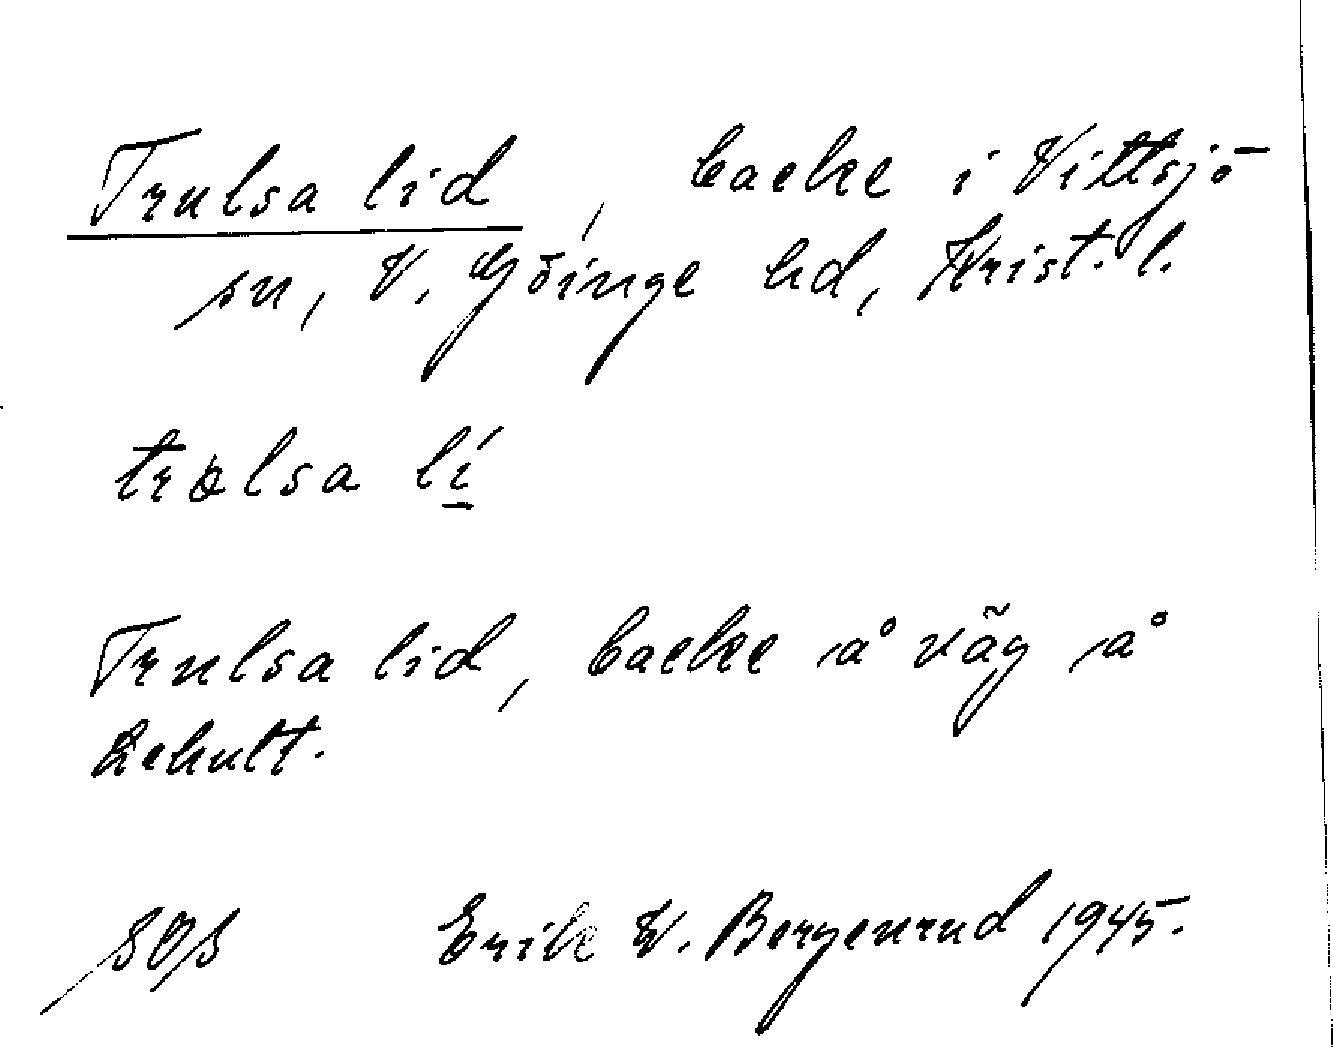 Trulsa lid, backe i Vittsjö
sn, V. Göinge hd, Krist. l.
trolsa lí
Trulsa lid, backe å väg å
Lehult.
SOS Erik W. Bergenrud 1945.